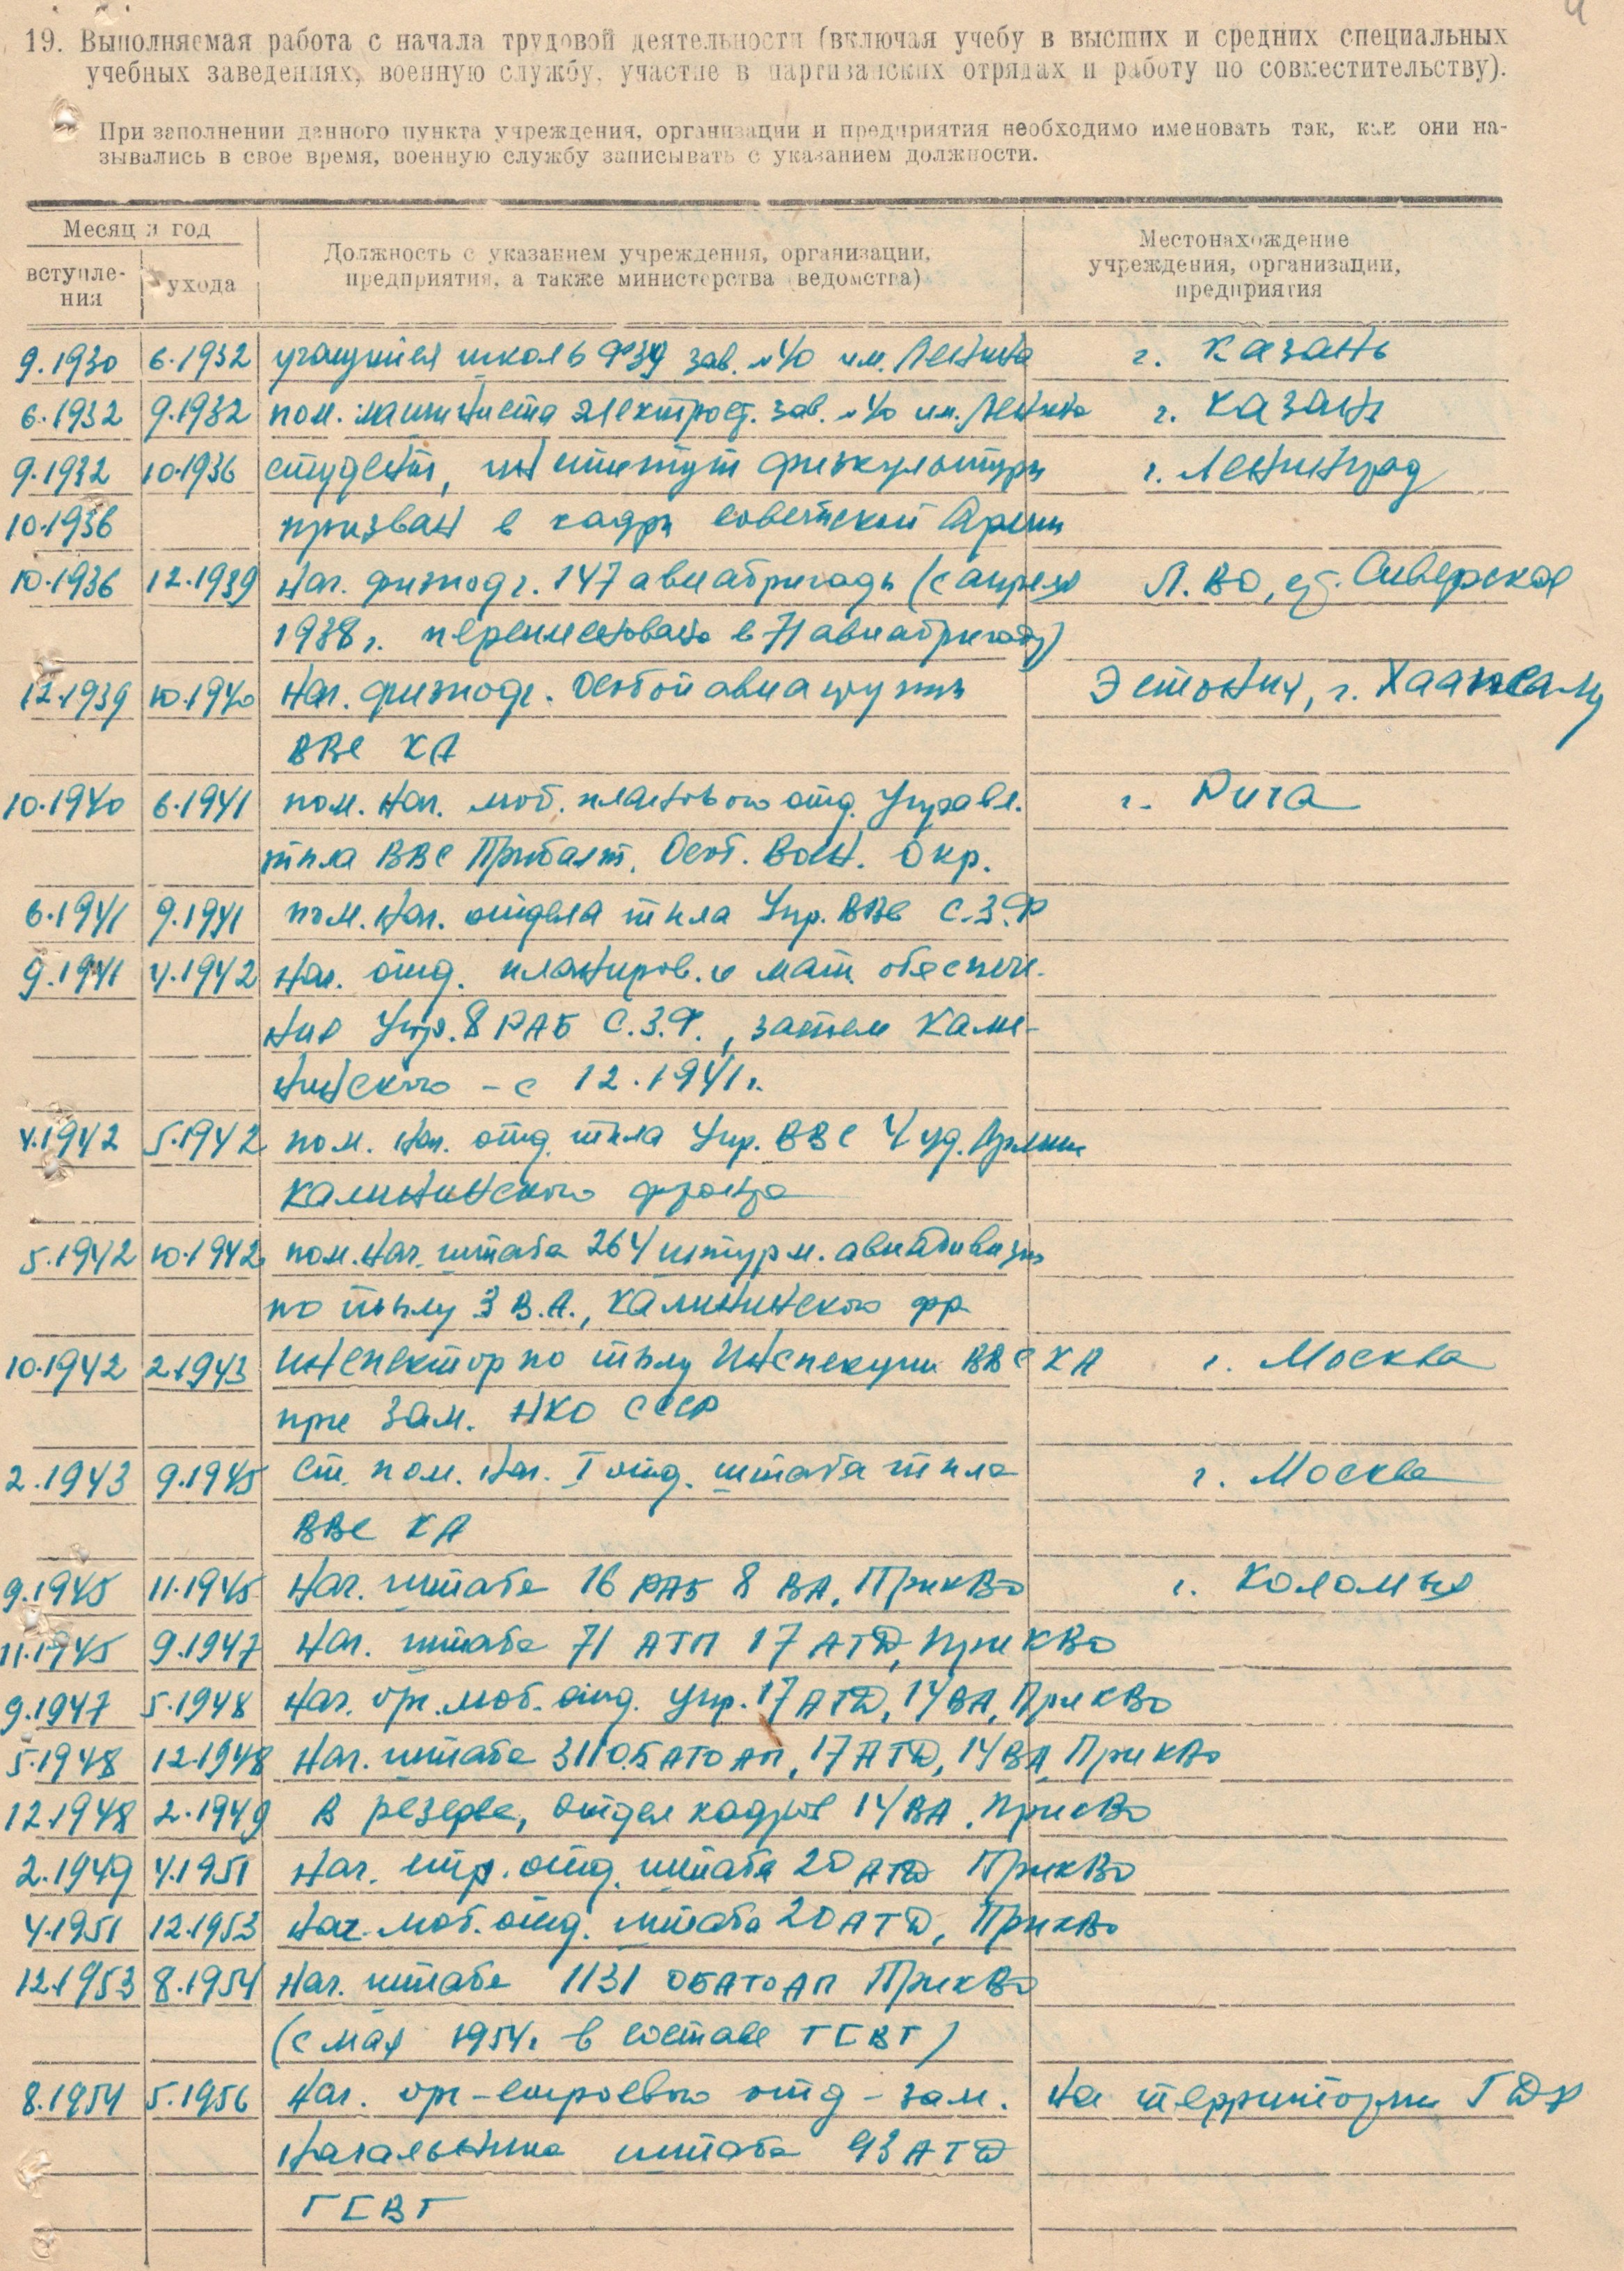 19. Выполняемая работа с начала трудовой деятельности (включая учебу в высших и средних специальных
учебных заведениях, военную службу, участие в партизанских отрядах и работу по совместительству).
При заполнении данного пункта учреждения, организации и предприятия необходимо именовать так, как они на-
зывались в свое время, военную службу записывать с указанием должности.
Месяц и год
вступле-
ния
ухода
Должность с указанием учреждения, организации,
предприятия, а также министерства (ведомства)
Местонахождение
учреждения, организации,
предприятия
9.1930 6.1932 учащийся школы ФЗУ зав. №40 им. Ленина г. Казань
6.1932 9.1932 пом. машиниста электрост. зав. №40 им. Ленина г. Казань
9.1932 10.1936 студент, институт физкультуры г. Ленинград
10.1936 призван в кадры Советской Армии
10.1936 12.1939 нач. физподг. 147 авиабригады (с апреля Л.ВО, ст. Сиверская
1938 г. переименована в 71 авиабригаду)
12.1939 10.1940 нач. физподг. Особой авиагруппы Эстония, г. Хаапсалу
ВВС КА
10.1940 6.1941 пом. нач. моб. планового отд. Управл. г. Рига
тыла ВВС Прибалт. Особ. Воен. Окр.
6.1941 9.1941 пом. нач. отдела тыла Упр. ВВС С.З.Ф
9.1941 4.1942 нач. отд. планиров. и мат. обеспече-
ния Упр. 8 РАБ С.З.Ф., затем Кали-
нинского - с 12.1941 г.
4.1942 5.1942 пом. нач. отд. тыла Упр. ВВС 4 уд. Армии
Калининского фронта
5.1942 10.1942 пом. нач. штаба 264 штурм. авиадивизии
по тылу 3 В.А., Калининского фр
10.1942 2.1943 инспектор по тылу Инспекции ВВС КА г. Москва
при зам. НКО СССР
2.1943 9.1945 Ст. пом. нач. I отд. штаба тыла г. Москва
ВВС КА
9.1945 11.1945 нач. штаба 16 РАБ 8 ВА, ПрикВо г. Коломыя
11.1945 9.1947 нач. штаба 71 АТП 17 АТД, ПрикВо
9.1947 5.1948 нач. орг. моб. отд. упр. 17 АТД, 14 ВА, ПрикВо
5.1948 12.1948 нач. штаба 311 ОБАТОАП, 17 АТД, 14 ВА ПрикВо
12.1948 2.1949 в резерве, отдел кадров 14 ВА, ПрикВо
2.1949 4.1951 нач. стр. отд. штаба 20 АТД ПрикВо
4.1951 12.1953 нач. моб. отд. штаба 20 АТД, ПрикВо
12.1953 8.1954 нач. штаба 1131 ОБАТОАП ПрикВо
(с мая 1954 г. в составе ГСВГ)
8.1954 5.1956 нач. орг-строевого отд - зам. на территории ГДР
начальника штаба 93 АТД
ГСВГ